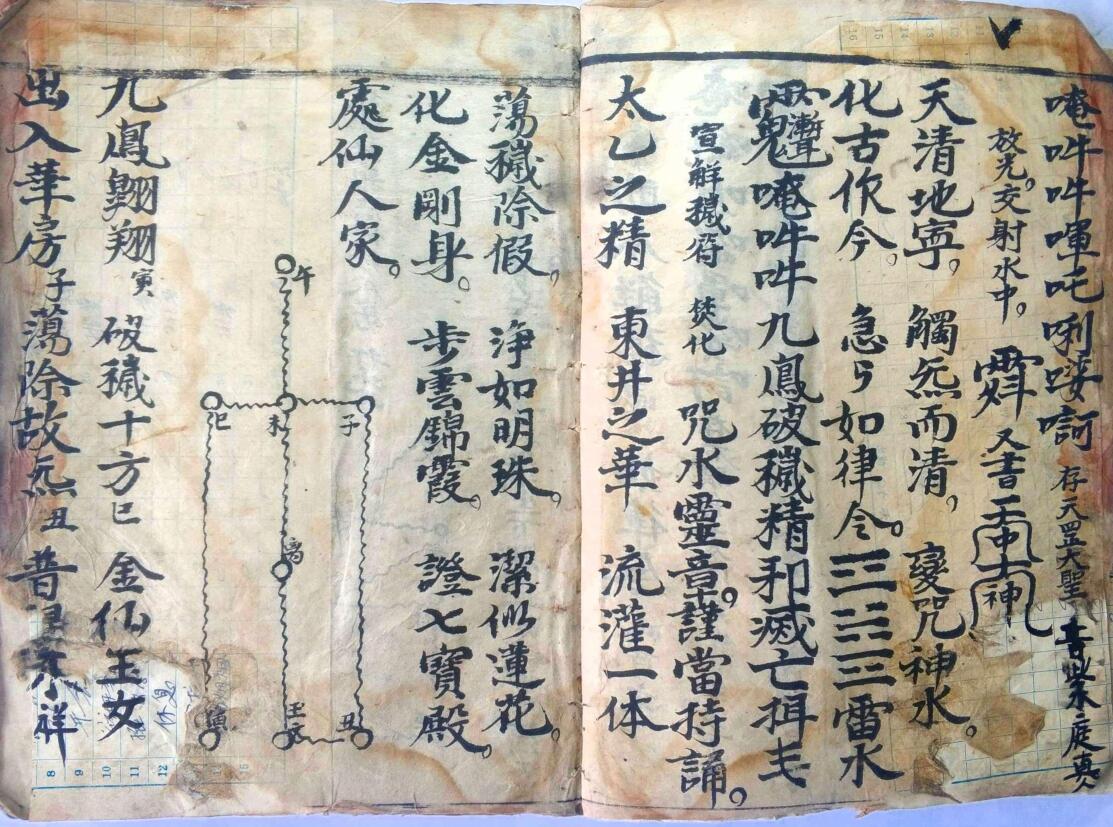 唵吽吽㖶吒唎㖫訶 存天罡大聖 紫庭真人
放光。交射水中。 又書 神
天清地寧。 觸炁而清。 變咒神水。
化古作今。 急ら如律令。三三三雷水
唵吽吽九鳳破穢精邪滅亡
宣觧穢符 焚化 咒水靈章。謹當持誦。
太乙之精 東井之華 流灌一体
蕩穢除假。 淨如明珠。 潔似蓮花。
化金剛身。 步雲錦霞。 證七寶殿。
處仙人家。
午
巳 未 子
离
丑
九鳳翺翔寅 破穢十方巳 金仙玉女
出入華房子 蕩除故炁丑 普 祥
8
9
10
11
12
13
14
15
16